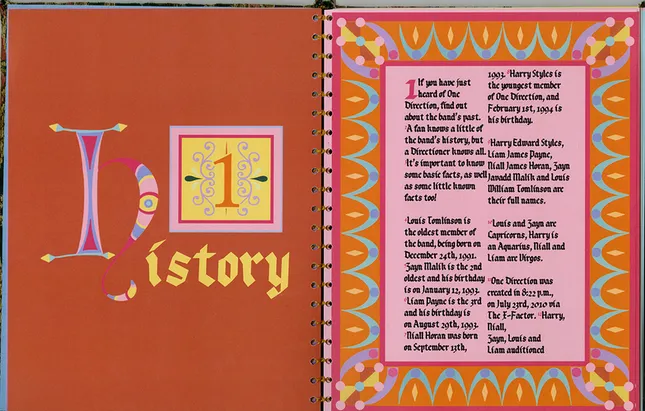 1
History
1 If you have just
heard of One
Direction, find out
about the band's past.
A fan knows a little of
the band's history, but
a Directioner knows all.
It's important to know
some basic facts, as well
as some little known
facts too!
Louis Tomlinson is
the oldest member of
the band, being born on
December 24th, 1991.
Zayn Malik is the 2nd
oldest and his birthday
is on January 12, 1993.
Liam Payne is the 3rd
and his birthday is
on August 29th, 1993.
Niall Horan was born
on September 13th,
1993. Harry Styles is
the youngest member
of One Direction, and
February 1st, 1994 is
his birthday.
Harry Edward Styles,
Liam James Payne,
Niall James Horan, Zayn
Javadd Malik and Louis
William Tomlinson are
their full names.
Louis and Zayn are
Capricorns, Harry is
an Aquarius, Niall and
Liam are Virgos.
One Direction was
created in 8:22 p.m.,
on July 23rd, 2010 via
The X-Factor. Harry,
Niall,
Zayn, Louis and
Liam auditioned